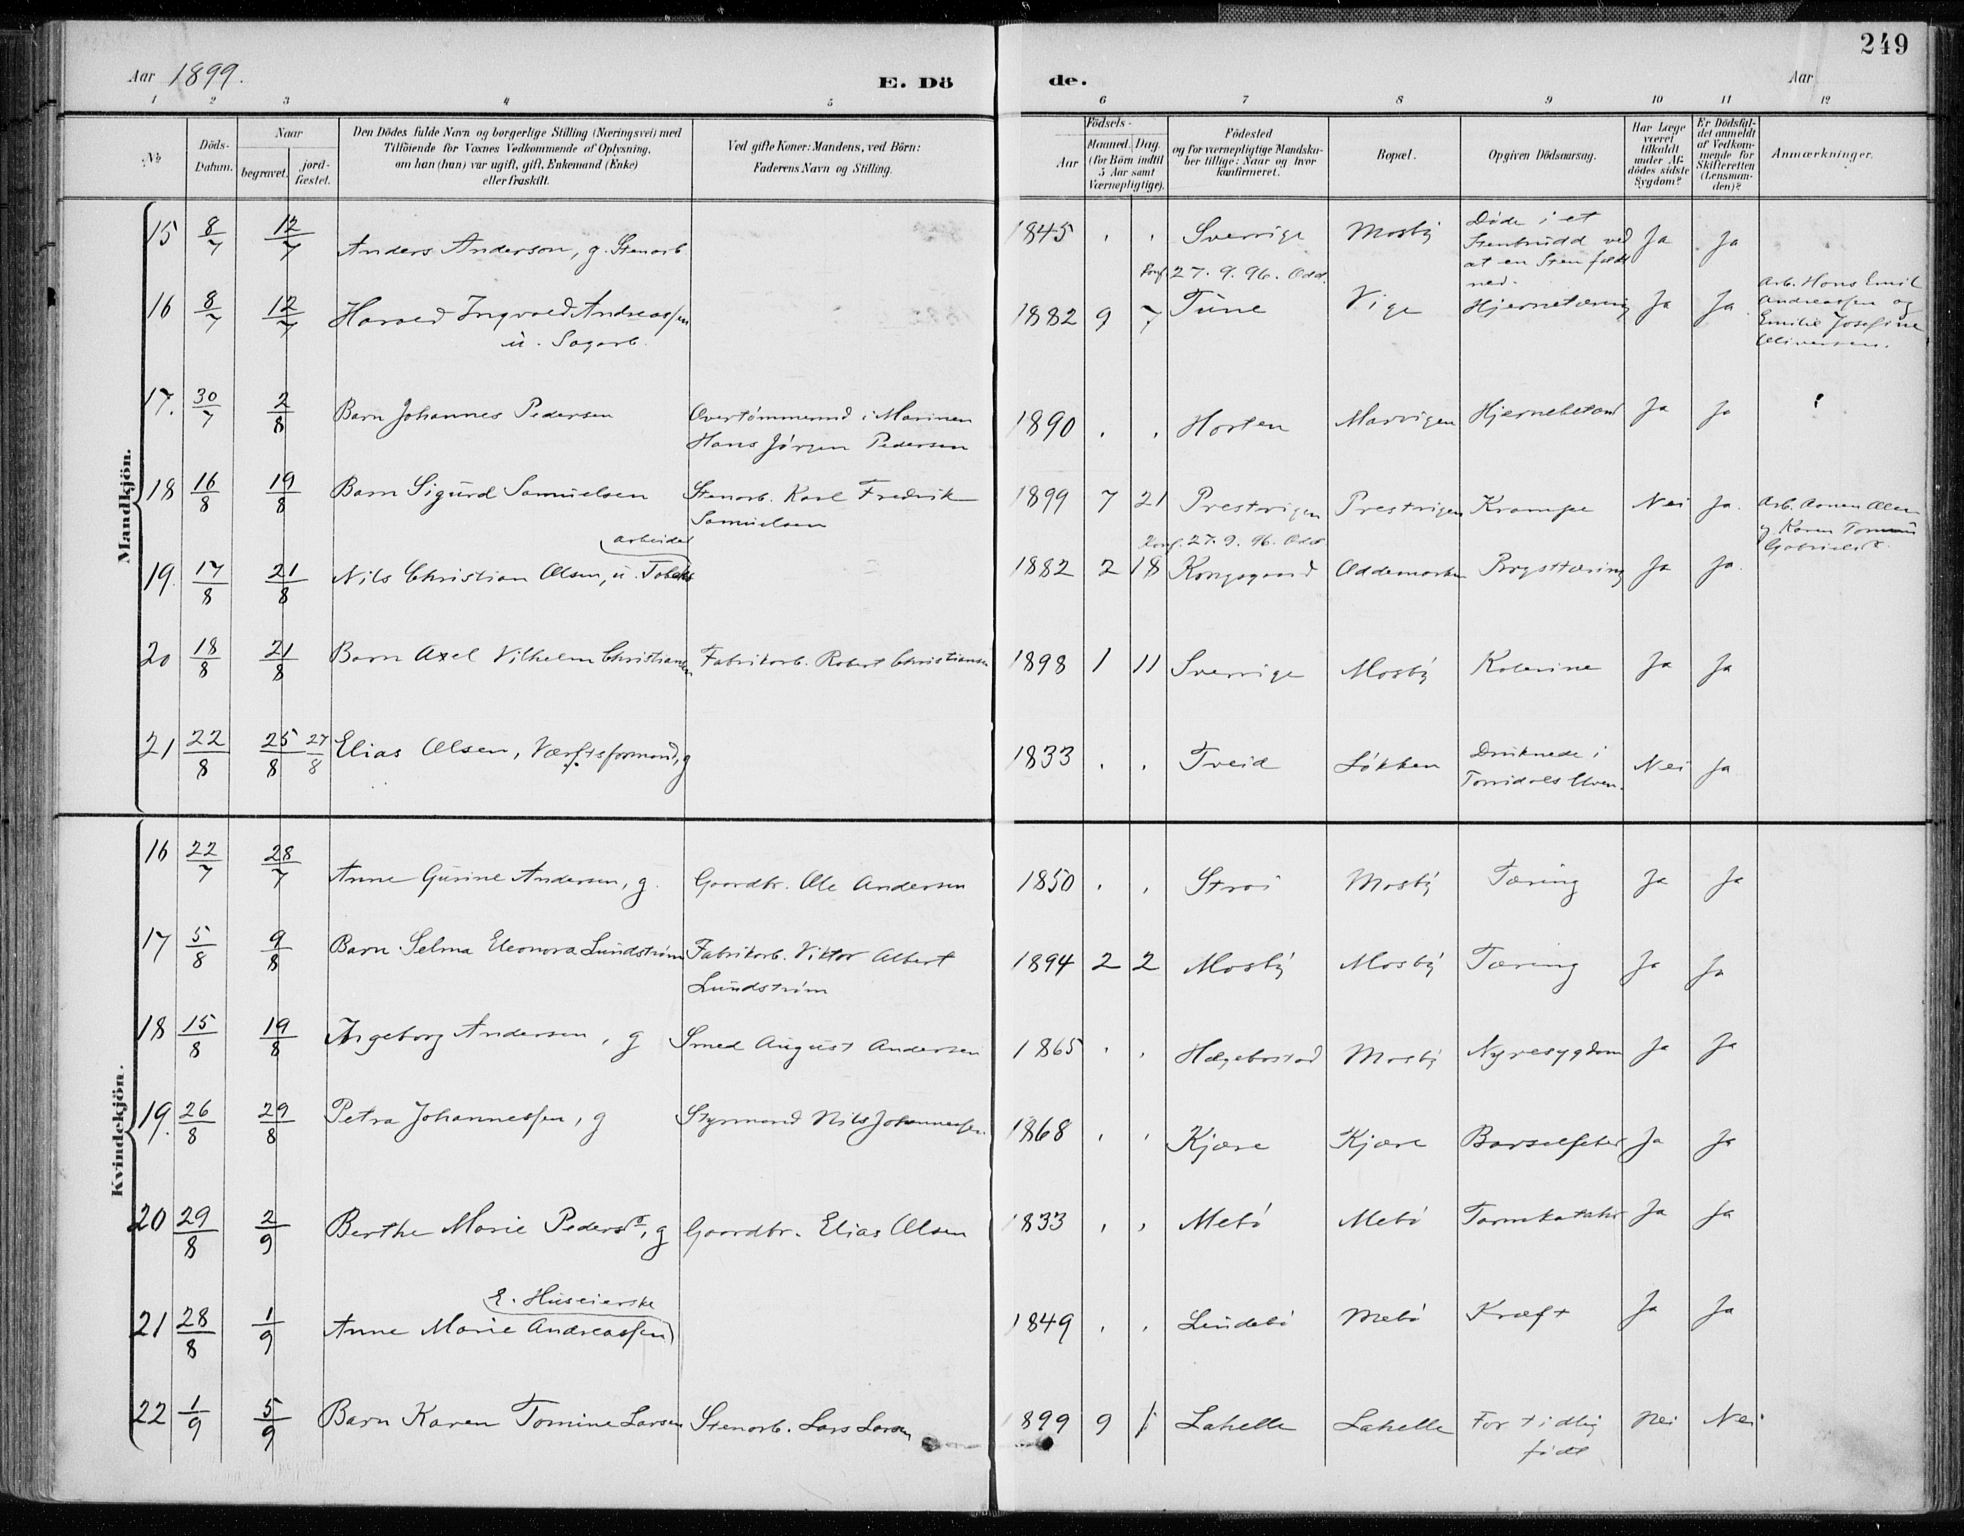 249
Aar 1899. E. Dö de. Aar
1 2 3 4 5 6 7 8 9 10 11 12
№
Döds-Datum.
Naar
begravet. jordfæstet.
Den Dödes fulde Navn og borgerlige Stilling (Næringsvei) med
Tilföiende for Voxnes Vedkommende af Oplysning,
om han (hun) var ugift, gift, Enkemand (Enke)
eller fraskilt.
Ved gifte Koner: Mandens, ved Börn:
Faderens Navn og Stilling.
Födsels-
Aar Maaned. Dag.
(for Börn indtil
5 Aar samt
Værnepligtige).
Födested
og for værnepligtige Mandskaber tillige: Naar og hvor
konfirmeret.
Bopæl.
Opgiven Dödsaarsag.
Har Læge
været
tilkaldt
under Afdödes sidste
Sygdom?
Er Dödsfaldet anmeldt
af Vedkommende for
Skifteretten
(Lensmanden)?
Anmærkninger.
Mandkjön.
15 8/7 12/7 Anders Anderson, g. Stenarb 1845 . . Sverrige Mosby Døde i et Stenbrudd ved at en Sten faldt ned. Ja Ja
16 8/7 12/7 Harald Ingvald Andreassen u. Sagarb. 1882 9 7 Konf. 27.9.96. Odd. Tune Vige Hjernetæring Ja Ja Arb. Hans Emil Andreassen og Emilie Josefine Oliversen.
17. 30/7 2/8 Barn Johannes Pedersen Overtømmermd i Marinen Hans Jørgen Pedersen 1890 . . Horten Marvigen Hjernebetænd Ja Ja
18 16/8 19/8 Barn Sigurd Samuelsen Stenarb. Karl Fredrik Samuelsen 1899 7 21 Prestvigen Prestvigen Krampe Nei Ja
19. 17/8 21/8 Nils Christian Olsen, u. Tobaks arbeider 1882 2 18 Konf. 27.9.96. Odd Kongsgaard Oddemarken Brysttæring Ja Ja. Arb. Olsen og Karen Gabrielsd.
20 18/8 21/8 Barn Axel Vilhelm Christiansen Fabrikarb. Robert Christiansen 1898 1 11 Sverrige Mosby Kolerine Ja Ja
21 22/8 25/8 27/8 Elias Olsen, Værftsformand, g 1833 . . Tveid Løkken Druknede i Torridals Elven. Nei Ja
Kvindekjön.
16 22/7 28/7 Anne Gurine Andersen, g. Gaardbr. Ole Andersen 1850 . . Strai Mosby Tæring Ja Ja
17 5/8 9/8 Barn Selma Eleonora Lundstrøm Fabrikarb. Viktor Albert Lundstrøm 1894 2 2 Mosby Mosby Tæring Ja Ja
18 15/8 19/8 Ingeborg Andersen, g Smed August Andersen 1865 . . Hægebostad Mosby Nyresygdom Ja Ja
19. 26/8 29/8 Petra Johannessen, g Styrmand Nils Johannessen 1868 . . Kjære Kjære Barselfeber Ja Ja
20 29/8 2/9 Berthe Marie Pedersd., g Gaardbr. Elias Olsen 1833 . . Mebø Mebø Tarmkatahr Ja Ja
21 28/8 1/9 Anne Marie Andreassen E. Huseierske 1849 . . Lindebø Mebø Kræft Ja Ja
22 1/9 5/9 Barn Karen Tomine Larsen Stenarb. Lars Larsen 1899 9 1 Lahelle Lahelle For tidlig født Nei Nei